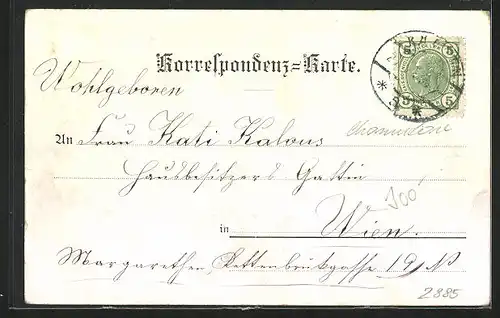 Korrespondenz-Karte.
Wohlgeboren
An Frau Kati Kalous
Hausbesitzers Gattin
in Wien.
Margarethen, Rettenbrückgasse 19
5 5
2885